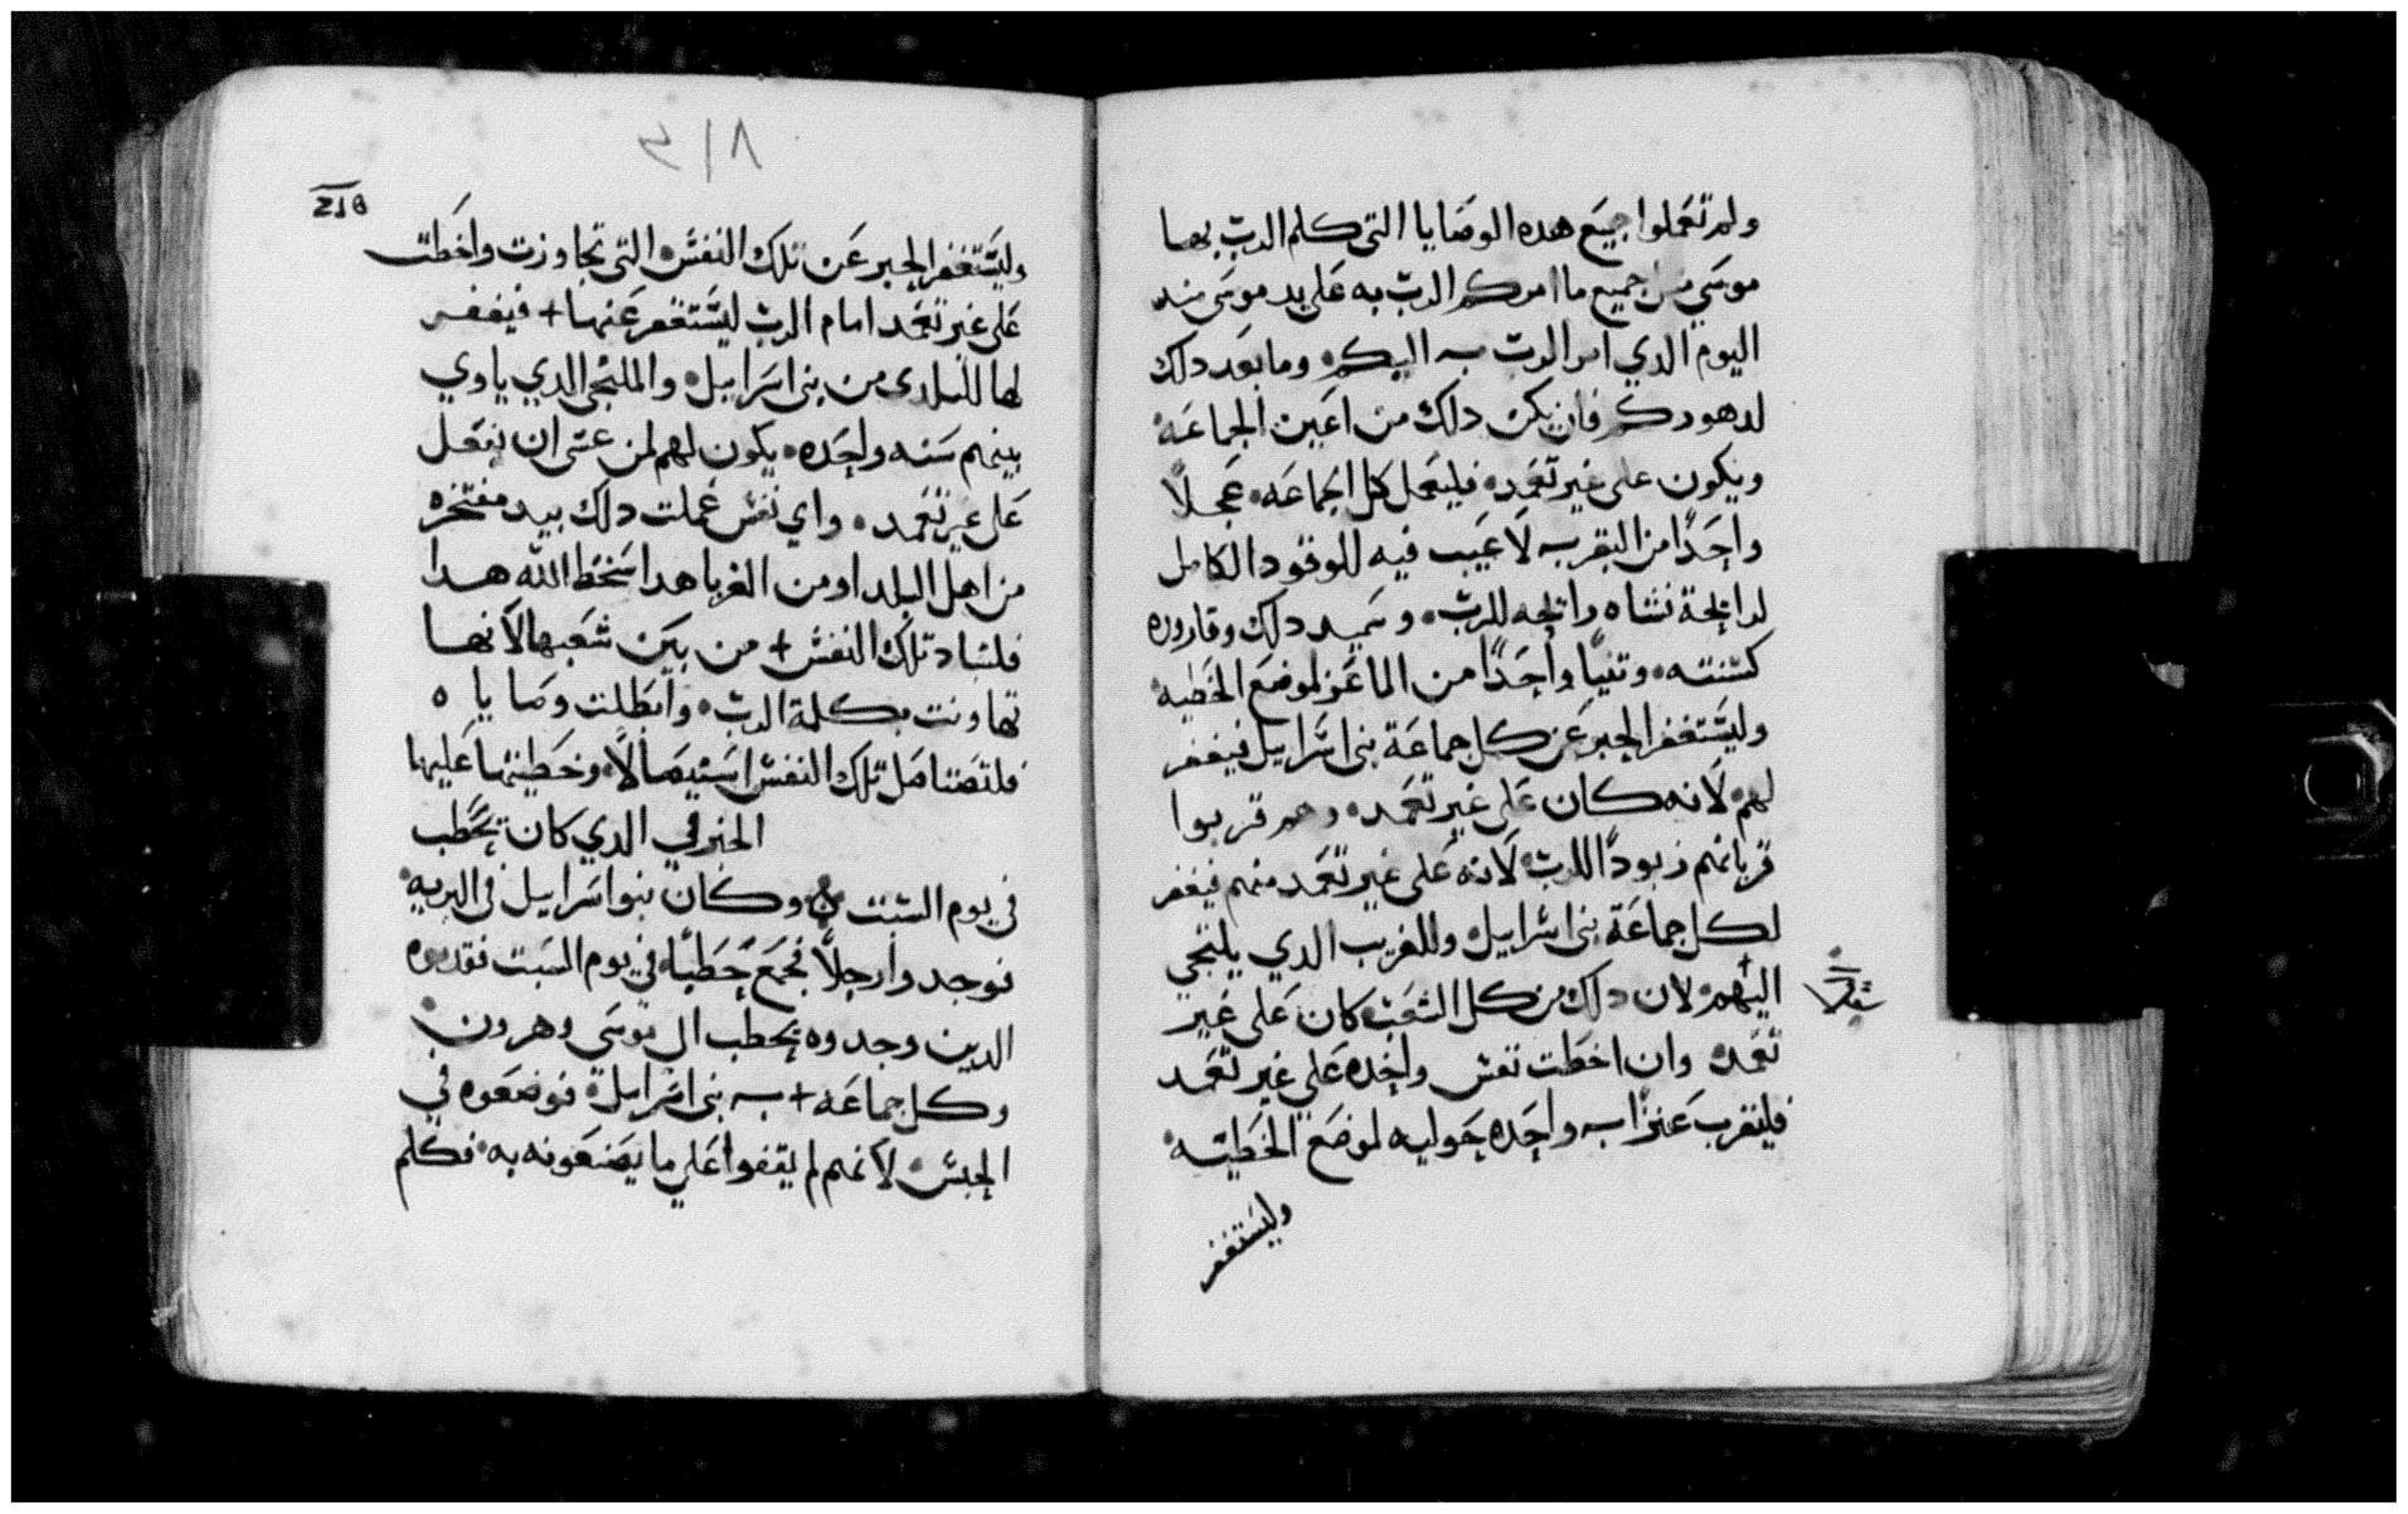 ولم تعملوا جميع هده الوصايا التي كلم الرب بها
موسي من جميع ما امركم الرب به علي يد موسي مند
اليوم الدي امر الرب به اليكم وما بعد دلك
لدهوركم فان يكن داك من اعين الجماعه
ويكون علي غير تعمد فليعمل كل الجماعه عجلاً
واحداً من البقر به لا عيب فيه للوقود الكامل
لرايحة نشاه رايحه للرب وسميد دلك وقاروره
كسنته وتنياً واحداً من الماعز لموضع الخطيه
وليستغفر الحبر عن كل جماعة بني اسراييل فيغفر
لهم لانه كان علي غير تعمد وهم قربوا
قربانهم زبوداً للرب لانه علي غير تعمد منهم فيغفر
لكل جماعة بني اسراييل وللغريب الدي يلتجي
اليهم لان دلك من كل الشعب كان علي غير
تعمد وان اخطت نفس واحده علي غير تعمد
فليقرب عنزاً به واحده حوليه لموضع الخطيه
وليستغفر
٢١٨
وليستغفر الحبر عن تلك النفس التي تجاوزت واخطت
علي غير تعمد امام الرب ليستغفر عنها + فيغفر
لها للبلدي من بني اسراييل والملتجي الدي ياوي
بينهم سنه واحده يكون لهم لمن عسي ان يفعل
علي غير تعمد واي نفس عملت دلك بيد مفتخره
من اهل البلد او من الغربا هدا سخط الله هدا
فلتباد تلك النفس + من بين شعبها لانها
تهاونت بكلمة الرب وابطلت وصاياه
فلتصتاصل تلك النفس استيصالاً وخطيتها عليها
الخبر في الدي كان يحطب
في يوم السبت وكان بنو اسراييل في البريه
فوجدوا رجلاً يجمع حطباً في يوم السبت فقدموه
الدين وجدوه يحطب الي موسي وهرون
وكل جماعه + به بني اسراييل فوضعوه في
الحبس لانهم لم يقفوا علي ما يصنعونه به فكلم